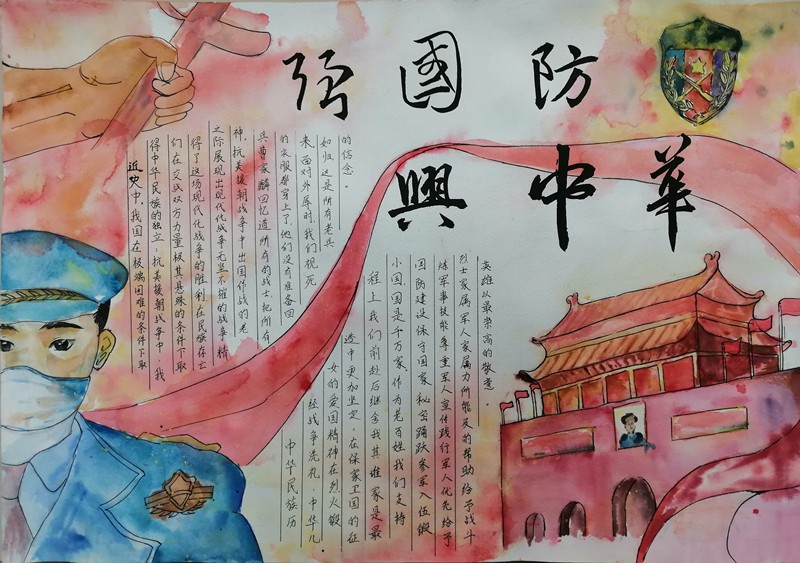 强國防
興中華
近史中，我国在极端困难的条件下取
得中华民族的独立，抗美援朝战争中，我
们在交战双方力量极其悬殊的条件下取
得了这场现代化战争的胜利，在民族存亡
之际展现出现代化战争无坚不摧的战争精
神，抗美援朝战争中出国作战的老
兵曹家麟回忆道所有的战士把所有
的衣服都穿上了，他们没有准备回
来，面对外辱时，我们视死
如归，这是所有老兵
的信念。
中华民族历
经战争洗礼，中华儿
女的爱国精神在烈火锻
造中更加坚定，在保家卫国的征
程上我们前赴后继舍我其谁家是最
小国，国是千万家，作为老百姓我们支持
国防建设保守国家秘密踊跃参军入伍锻
炼军事技能尊重军人宣传践行军人优先给予
烈士家属军人家属力所能及的帮助给予战斗
英雄以最崇高的敬意。